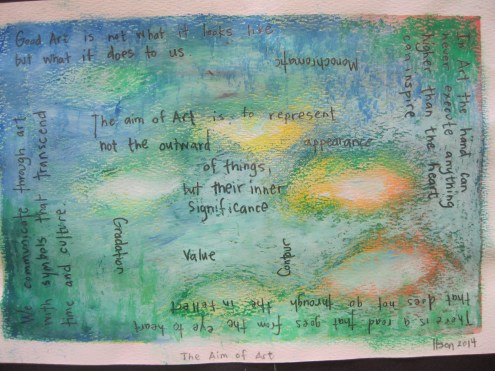 Good Art is not what it looks like
but what it does to us
Monochromatic
In Art the hand can
never execute anything
higher than the heart
can inspire
The aim of Art is to represent
not the outward appearance
of things,
but their inner
significance
We communicate through art
with symbols that transcend
time and culture.
Gradation
Value
Contour
There is a road that goes from the eye to heart
that does not go through the intellect
2014
The Aim of Art